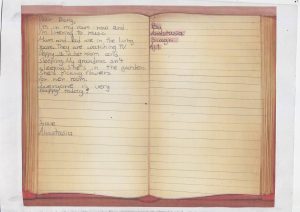 Dear Diary,
I'm in my room now and
I'm listening to music.
Mum and Dad are in the living
room. They are watching TV.
Poppy is in her room and
sleeping. My grandma isn't
sleeping. She's in the garden.
She's picking flowers
for her room.
Everyone is very
happy today!
Love
Anastasia
By
Anastasia